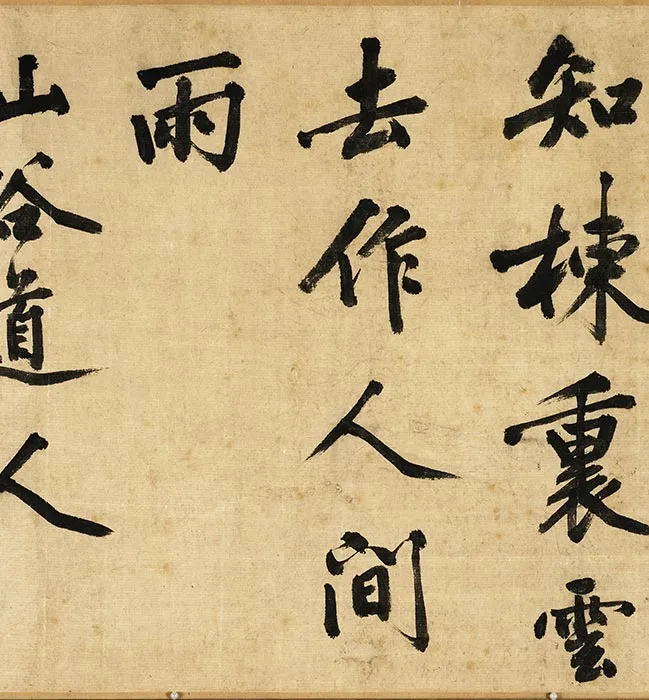 知棟裏雲
去作人間
雨
山谷道人